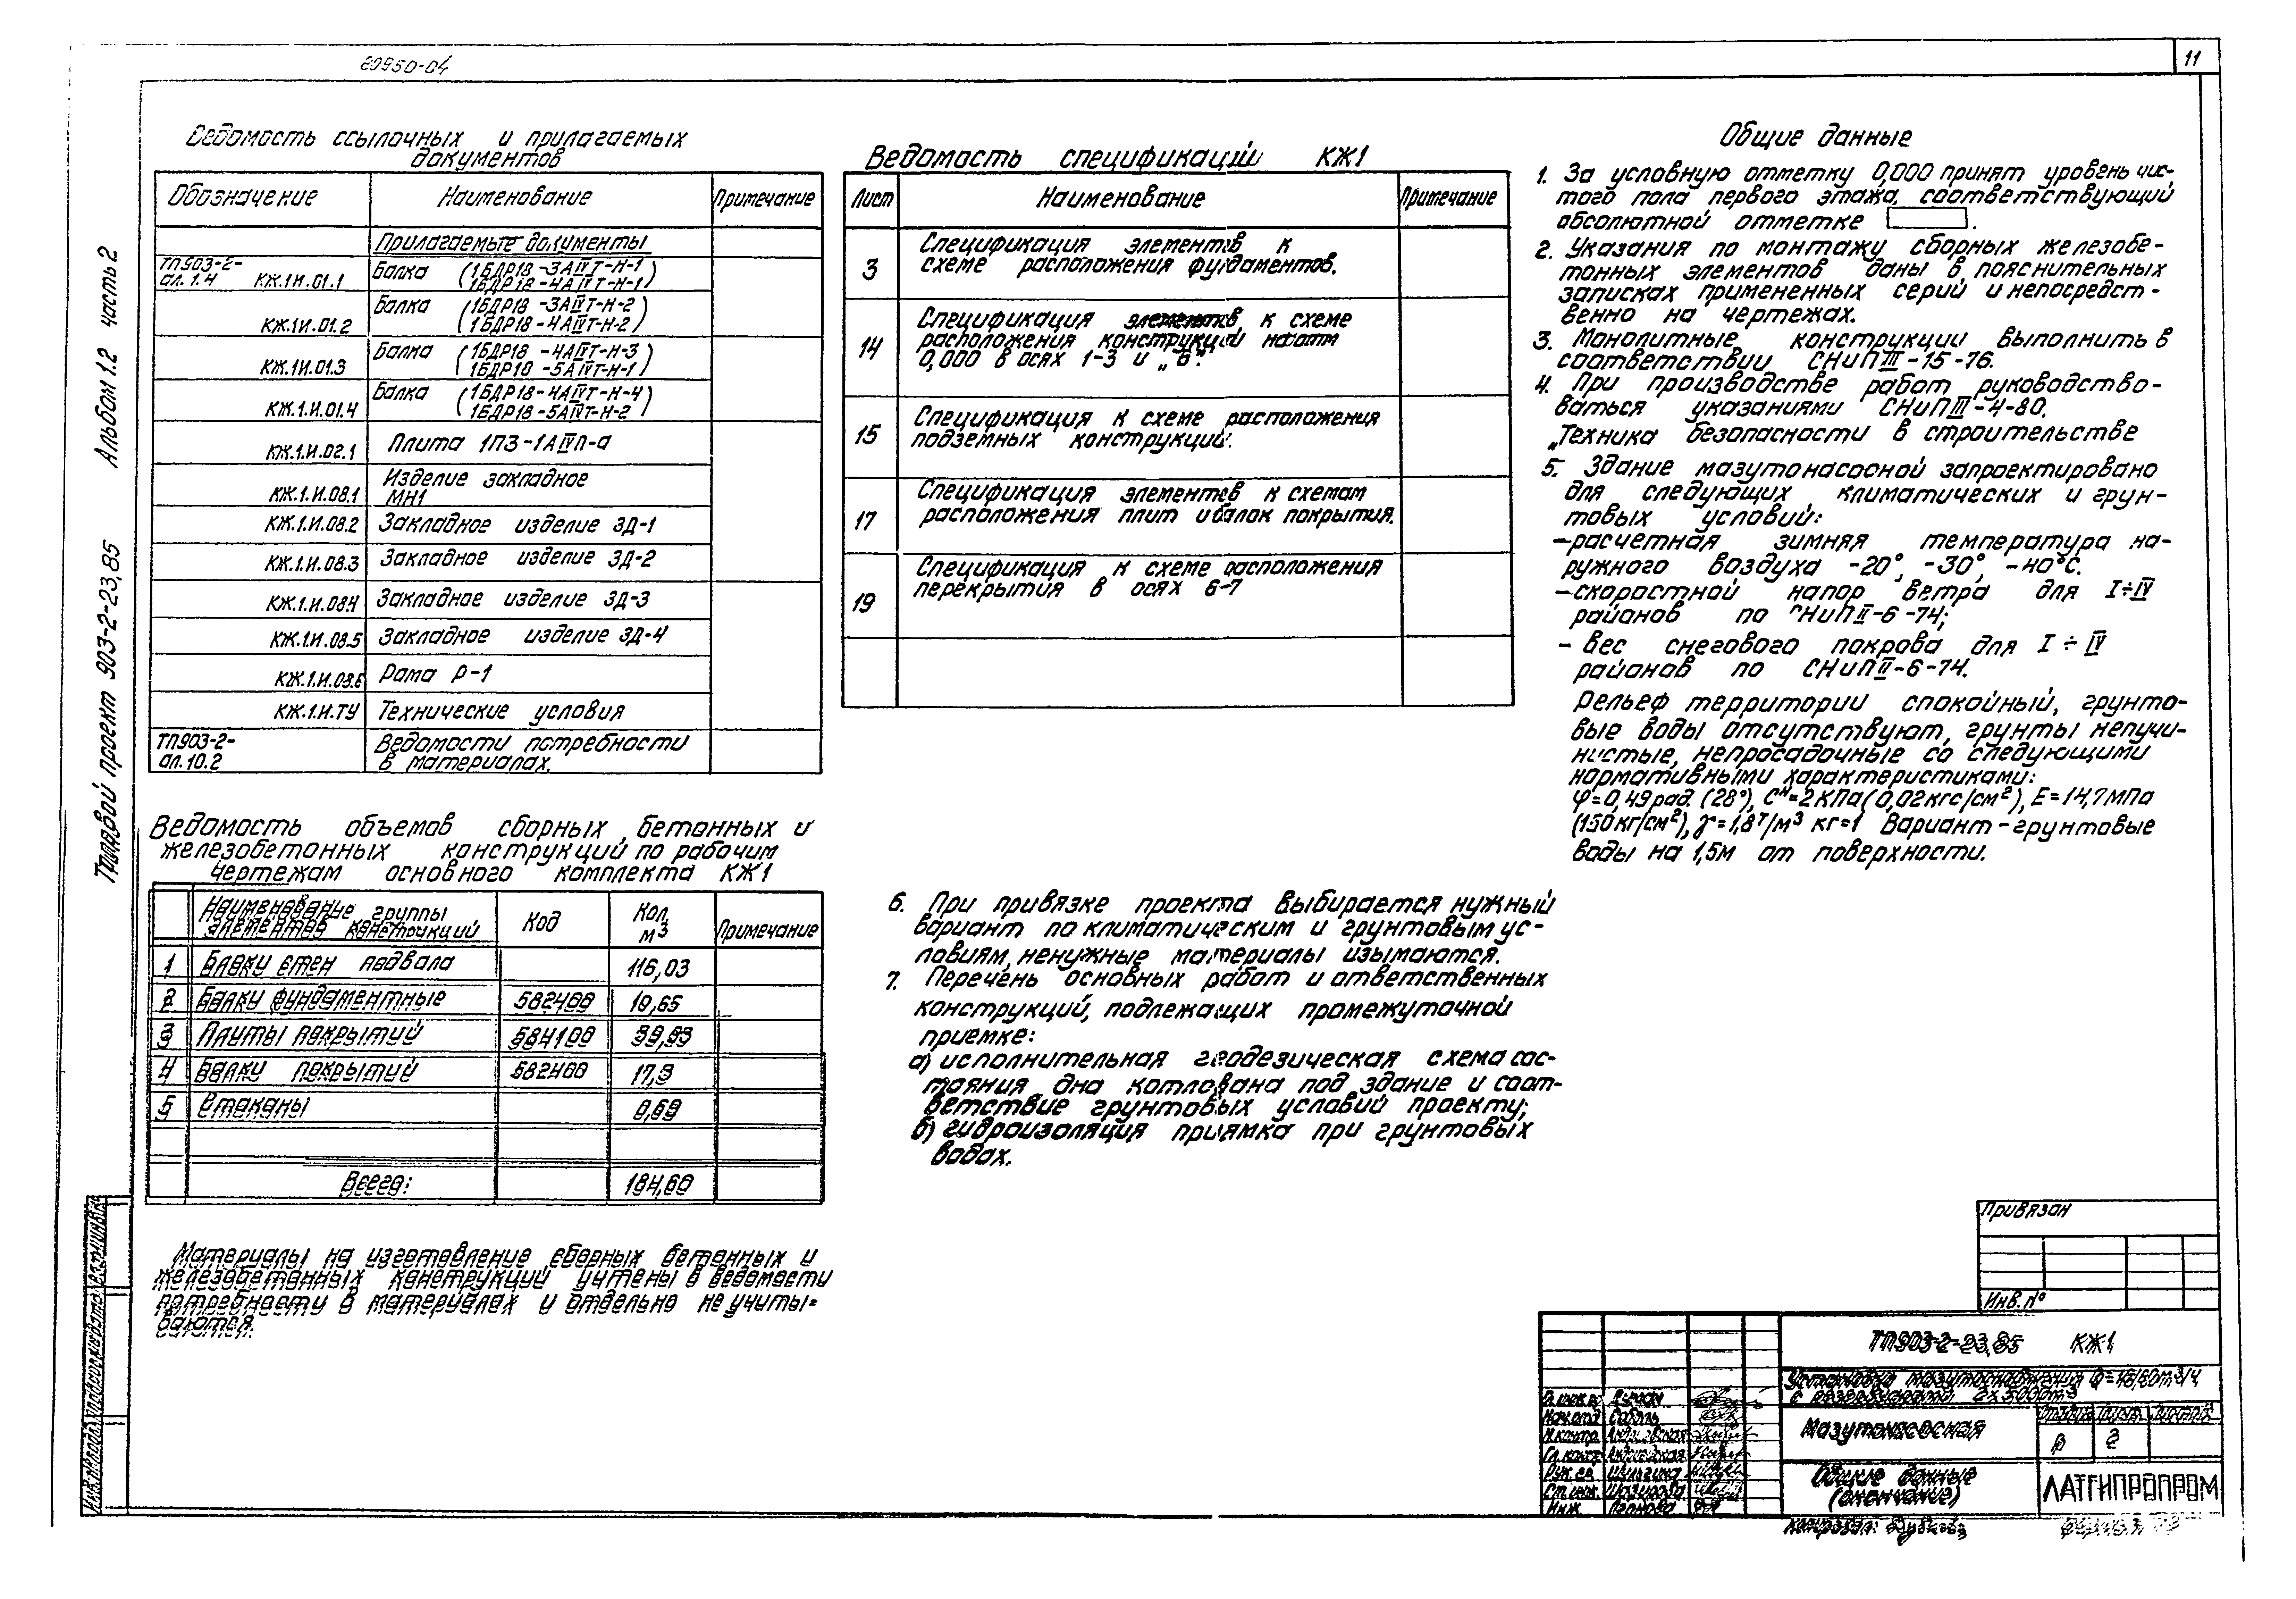 20950-04
11
Типовой проект 903-2-23,85 Альбом 1.2 часть 2
Ведомость ссылочных и прилагаемых
документов
Обозначение Наименование Примечание
Прилагаемые документы
ТП903-2-
ал. 1.4 КЖ.1И.01.1 Балка (1БДР18-3АIVТ-Н-1)
(1БДР18-4АIVТ-Н-1)
КЖ.1И.01.2 Балка (1БДР18-3АIVТ-Н-2)
(1БДР18-4АIVТ-Н-2)
КЖ.1И.01.3 Балка (1БДР18-4АIVТ-Н-3)
(1БДР18-5АIVТ-Н-1)
КЖ.1.И.01.4 Балка (1БДР18-4АIVТ-Н-4)
(1БДР18-5АIVТ-Н-2)
КЖ.1.И.02.1 Плита 1ПЗ-1АIVП-а
КЖ.1.И.08.1 Изделие закладное
МН1
КЖ.1.И.08.2 Закладное изделие ЗД-1
КЖ.1.И.08.3 Закладное изделие ЗД-2
КЖ.1.И.08.4 Закладное изделие ЗД-3
КЖ.1.И.08.5 Закладное изделие ЗД-4
КЖ.1.И.08.6 Рама Р-1
КЖ.1.И.ТУ Технические условия
ТП903-2-
ал.10.2 Ведомости потребности
в материалах.
Ведомость объемов сборных бетонных и
железобетонных конструкций по рабочим
чертежам основного комплекта КЖ1
Наименование группы
элементов конструкций Код Кол. м3 Примечание
1 Блоки стен подвала 116,03
2 Балки фундаментные 582400 10,65
3 Плиты покрытий 584100 39,93
4 Балки покрытий 582400 17,3
5 Стаканы 0,69
Всего: 184,60
Материалы на изготовление сборных бетонных и
железобетонных конструкций учтены в ведомости
потребности в материалах и отдельно не учиты-
ваются.
Ведомость спецификаций КЖ1
Лист Наименование Примечание
3 Спецификация элементов к
схеме расположения фундаментов.
14 Спецификация элементов к схеме
расположения конструкций на отм
0,000 в осях 1-3 и „б".
15 Спецификация к схеме расположения
подземных конструкций.
17 Спецификация элементов к схемам
расположения плит и балок покрытия.
19 Спецификация к схеме расположения
перекрытия в осях 6-7
6. При привязке проекта выбирается нужный
вариант по климатическим и грунтовым ус-
ловиям, ненужные материалы изымаются.
7. Перечень основных работ и ответственных
конструкций, подлежащих промежуточной
приемке:
а) исполнительная геодезическая схема сос-
тояния дна котлована под здание и соот-
ветствие грунтовых условий проекту;
б) гидроизоляция приямка при грунтовых
водах.
Общие данные
1. За условную отметку 0,000 принят уровень чис-
того пола первого этажа, соответствующий
абсолютной отметке .
2. Указания по монтажу сборных железобе-
тонных элементов даны в пояснительных
записках примененных серий и непосредст-
венно на чертежах.
3. Монолитные конструкции выполнить в
соответствии СНиПIII-15-76.
4. При производстве работ руководство-
ваться указаниями СНиПIII-4-80.
„Техника безопасности в строительстве
5. Здание мазутонасосной запроектировано
для следующих климатических и грун-
товых условий:
-расчетная зимняя температура на-
ружного воздуха -20°, -30°, -40°С.
-скоростной напор ветра для I÷IV
районов по СНиПII-6-74;
- вес снегового покрова для I÷IV
районов по СНиПII-6-74.
Рельеф территории спокойный, грунто-
вые воды отсутствуют, грунты непучи-
нистые, непросадочные со следующими
нормативными характеристиками:
φ=0,49рад. (28°), Сн=2КПа(0,02кгс/см2), Е=14,7МПа
(150кг/см2), γ=1,8т/м3 кг=1 Вариант-грунтовые
воды на 1,5м от поверхности.
Привязан
Инв.№
ТП903-2-23,85 КЖ1
Установка мазутоснабжения Q=16/60м3/ч
с резервуарами 2х5000м3
Мазутонасосная
Р 2
Общие данные
(окончание)
ЛАТГИПРОПРОМ
Нач.отд Соболь
Н.контр.
Рук.гр. Шульгина
Ст.инж.
Инж.
Копировал: